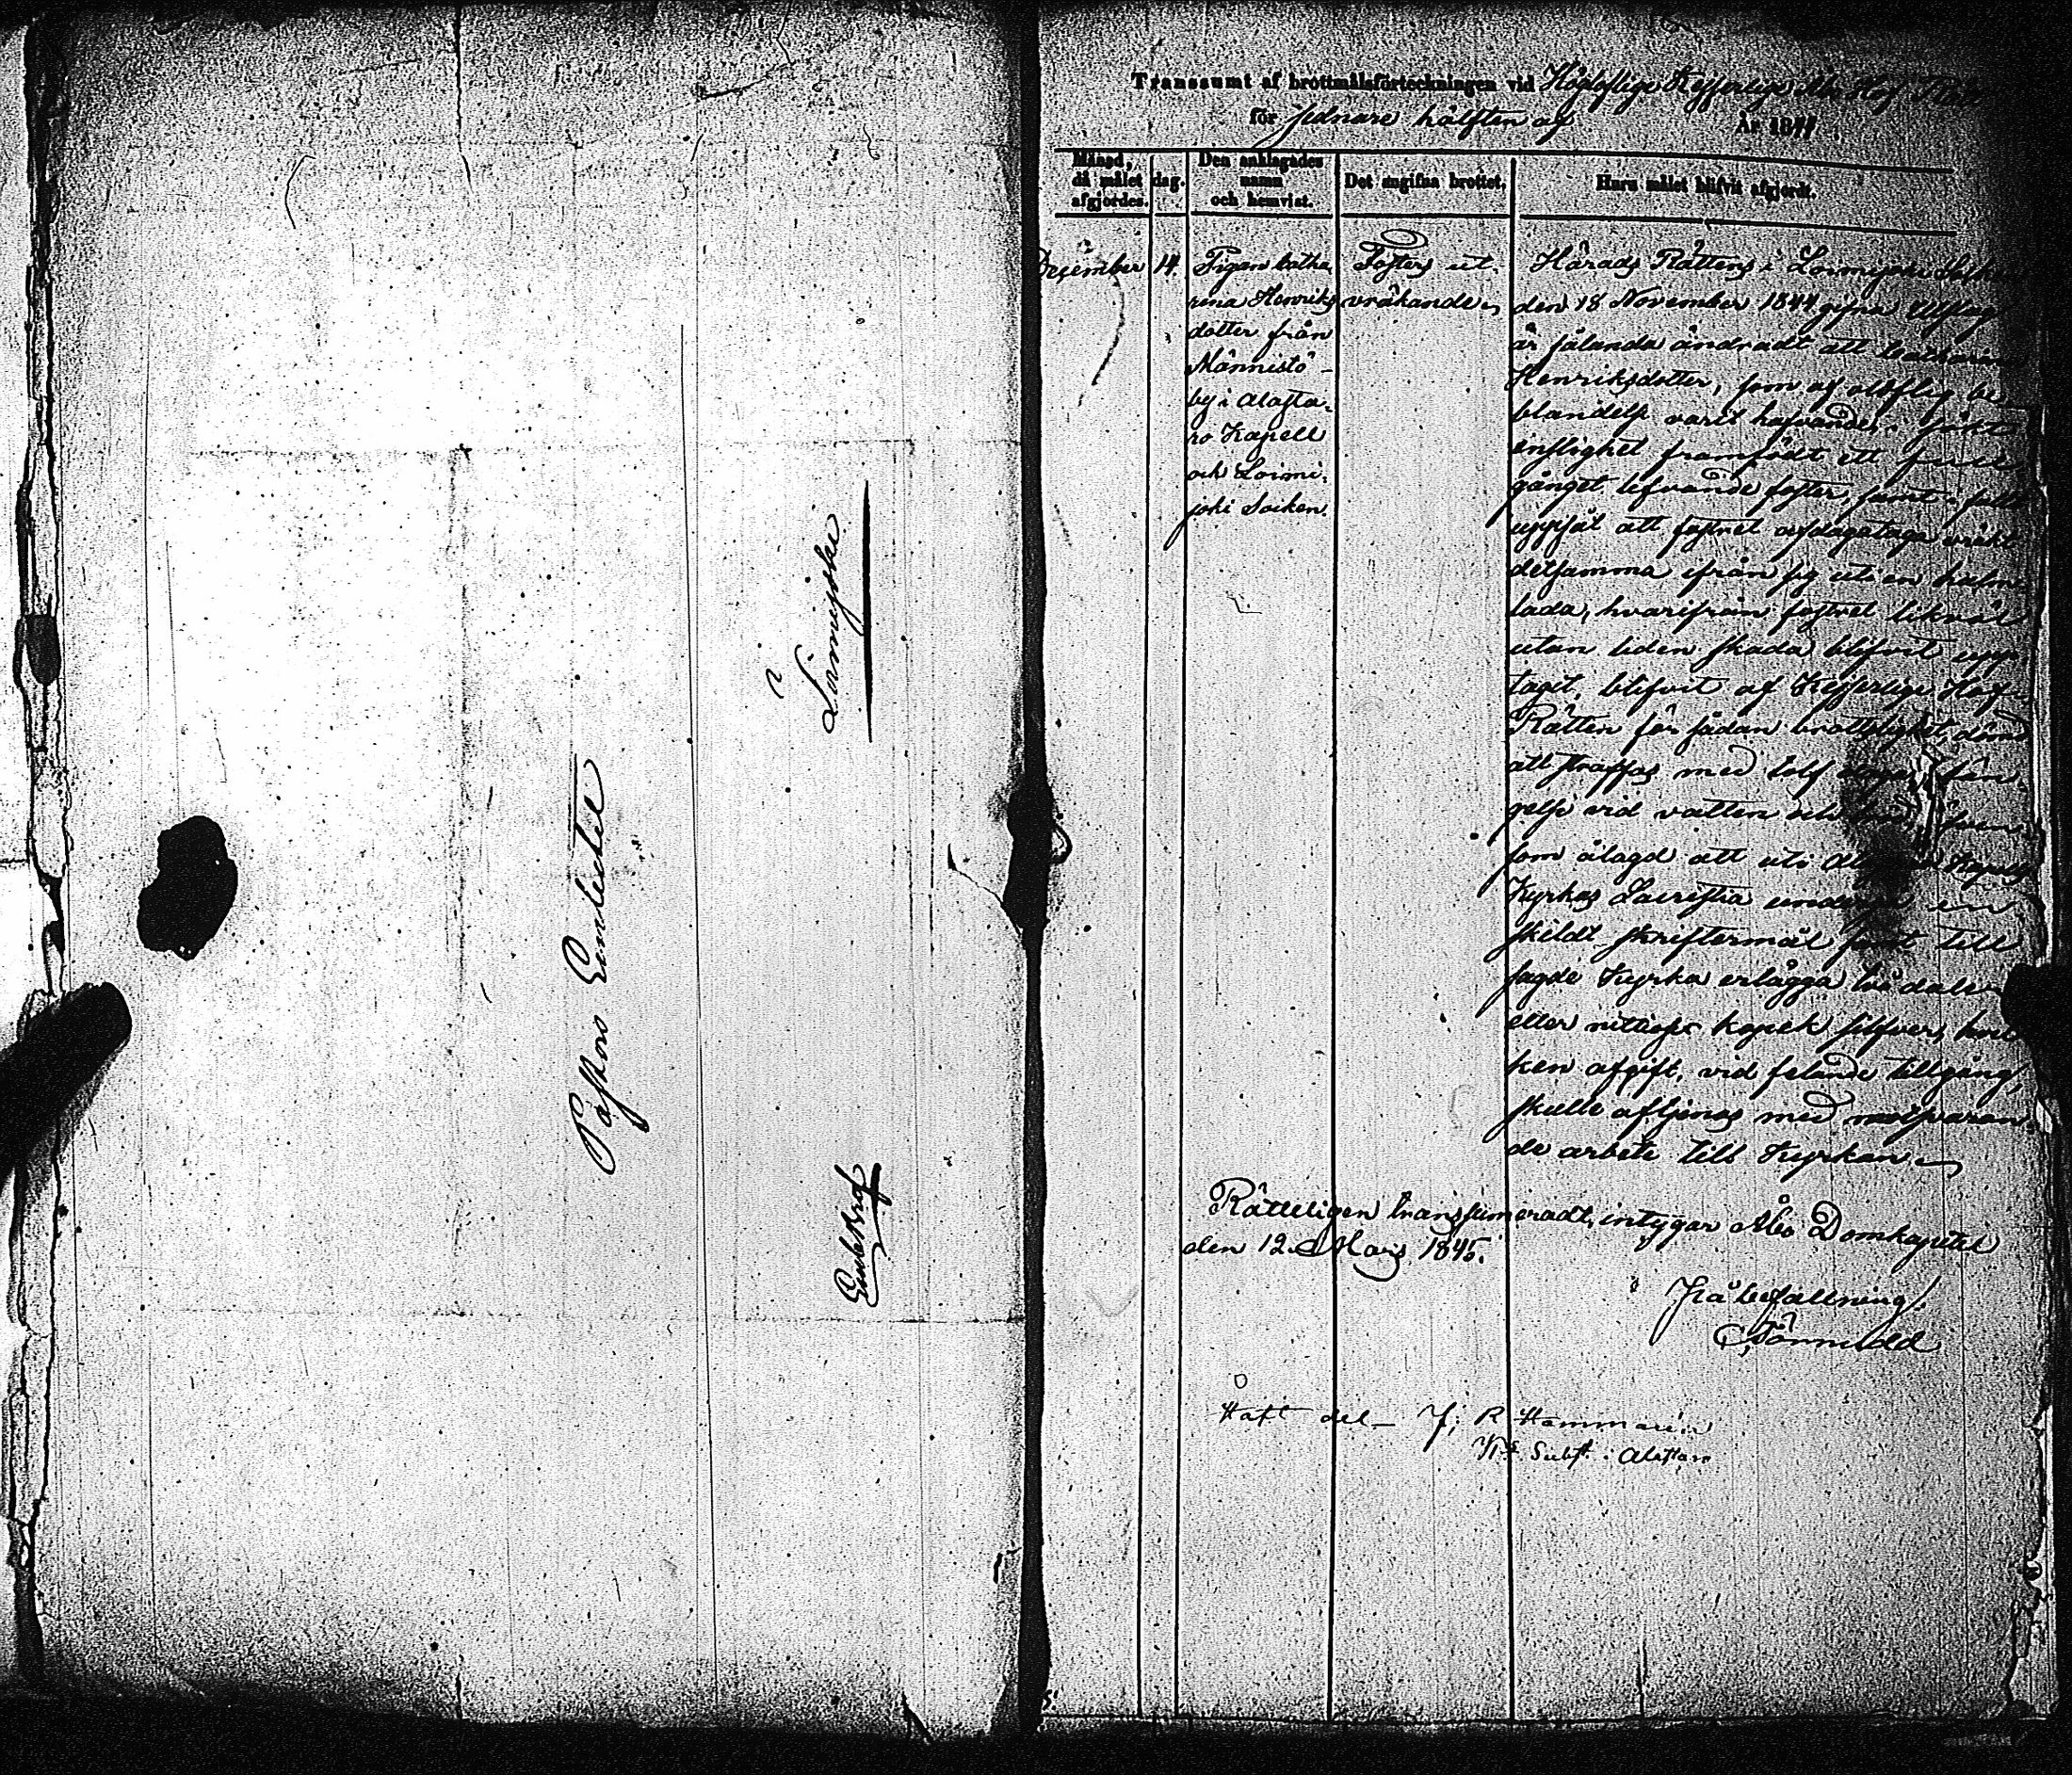 Pastors Embetet
i
Loimijoki
Embetsbref
Transsumt af brottmålsförteckningen vid Högloflige Kejserliga Åbo Hof Rätt
för sednare hälften af År 1844.
Månad, då målet afgjordes.
dag.
Den anklagades namn och hemvist.
Det angifna brottet.
Huru målet blifvit afgjordt.
December
14.
Pigan Catha-
rina Henriks
dotter från
Männistö
by i Alasta-
ro Kapell
och Loimi-
joki Socken.
Fosters ut-
vräkande
Härads Rättens i Loimijoki Sockn
den 18 November 1844 gifna Utslag
är sålunda ändradt att Catharina
Henriksdotter, som af oloflig be-
blandelse varit hafvande, i sökt
enslighet framfödt ett full-
gånget lefvande foster, samt i fullt
uppsåt att fostret afdagataga vräkt
detsamma ifrån sig uti en halm
lada, hvarifrån fostret likväl
utan liden skada blifvit upp
taget, blifvit af Kejserliga Hof
Rätten för sådan brottslighet dömd
att straffas med tolf dagars fän-
gelse vid vatten och bröd, äfven-
som ålagd att uti Alastaro Kapells
Kyrkas Sacristia undergå en
skildt skriftermål samt till
sagde Kyrka erlägga två daler
eller nittiosex kopek silfver, hvil
ken afgift, vid felande tillgång,
skulle aftjenas med motsvaran
de arbete till Kyrkan
Rätteligen transsumeradt, intygar Åbo Domkapitel
den 12 Mars 1845.
På befallning.
Haft del
R Hammarin
Subst. i Alastaro